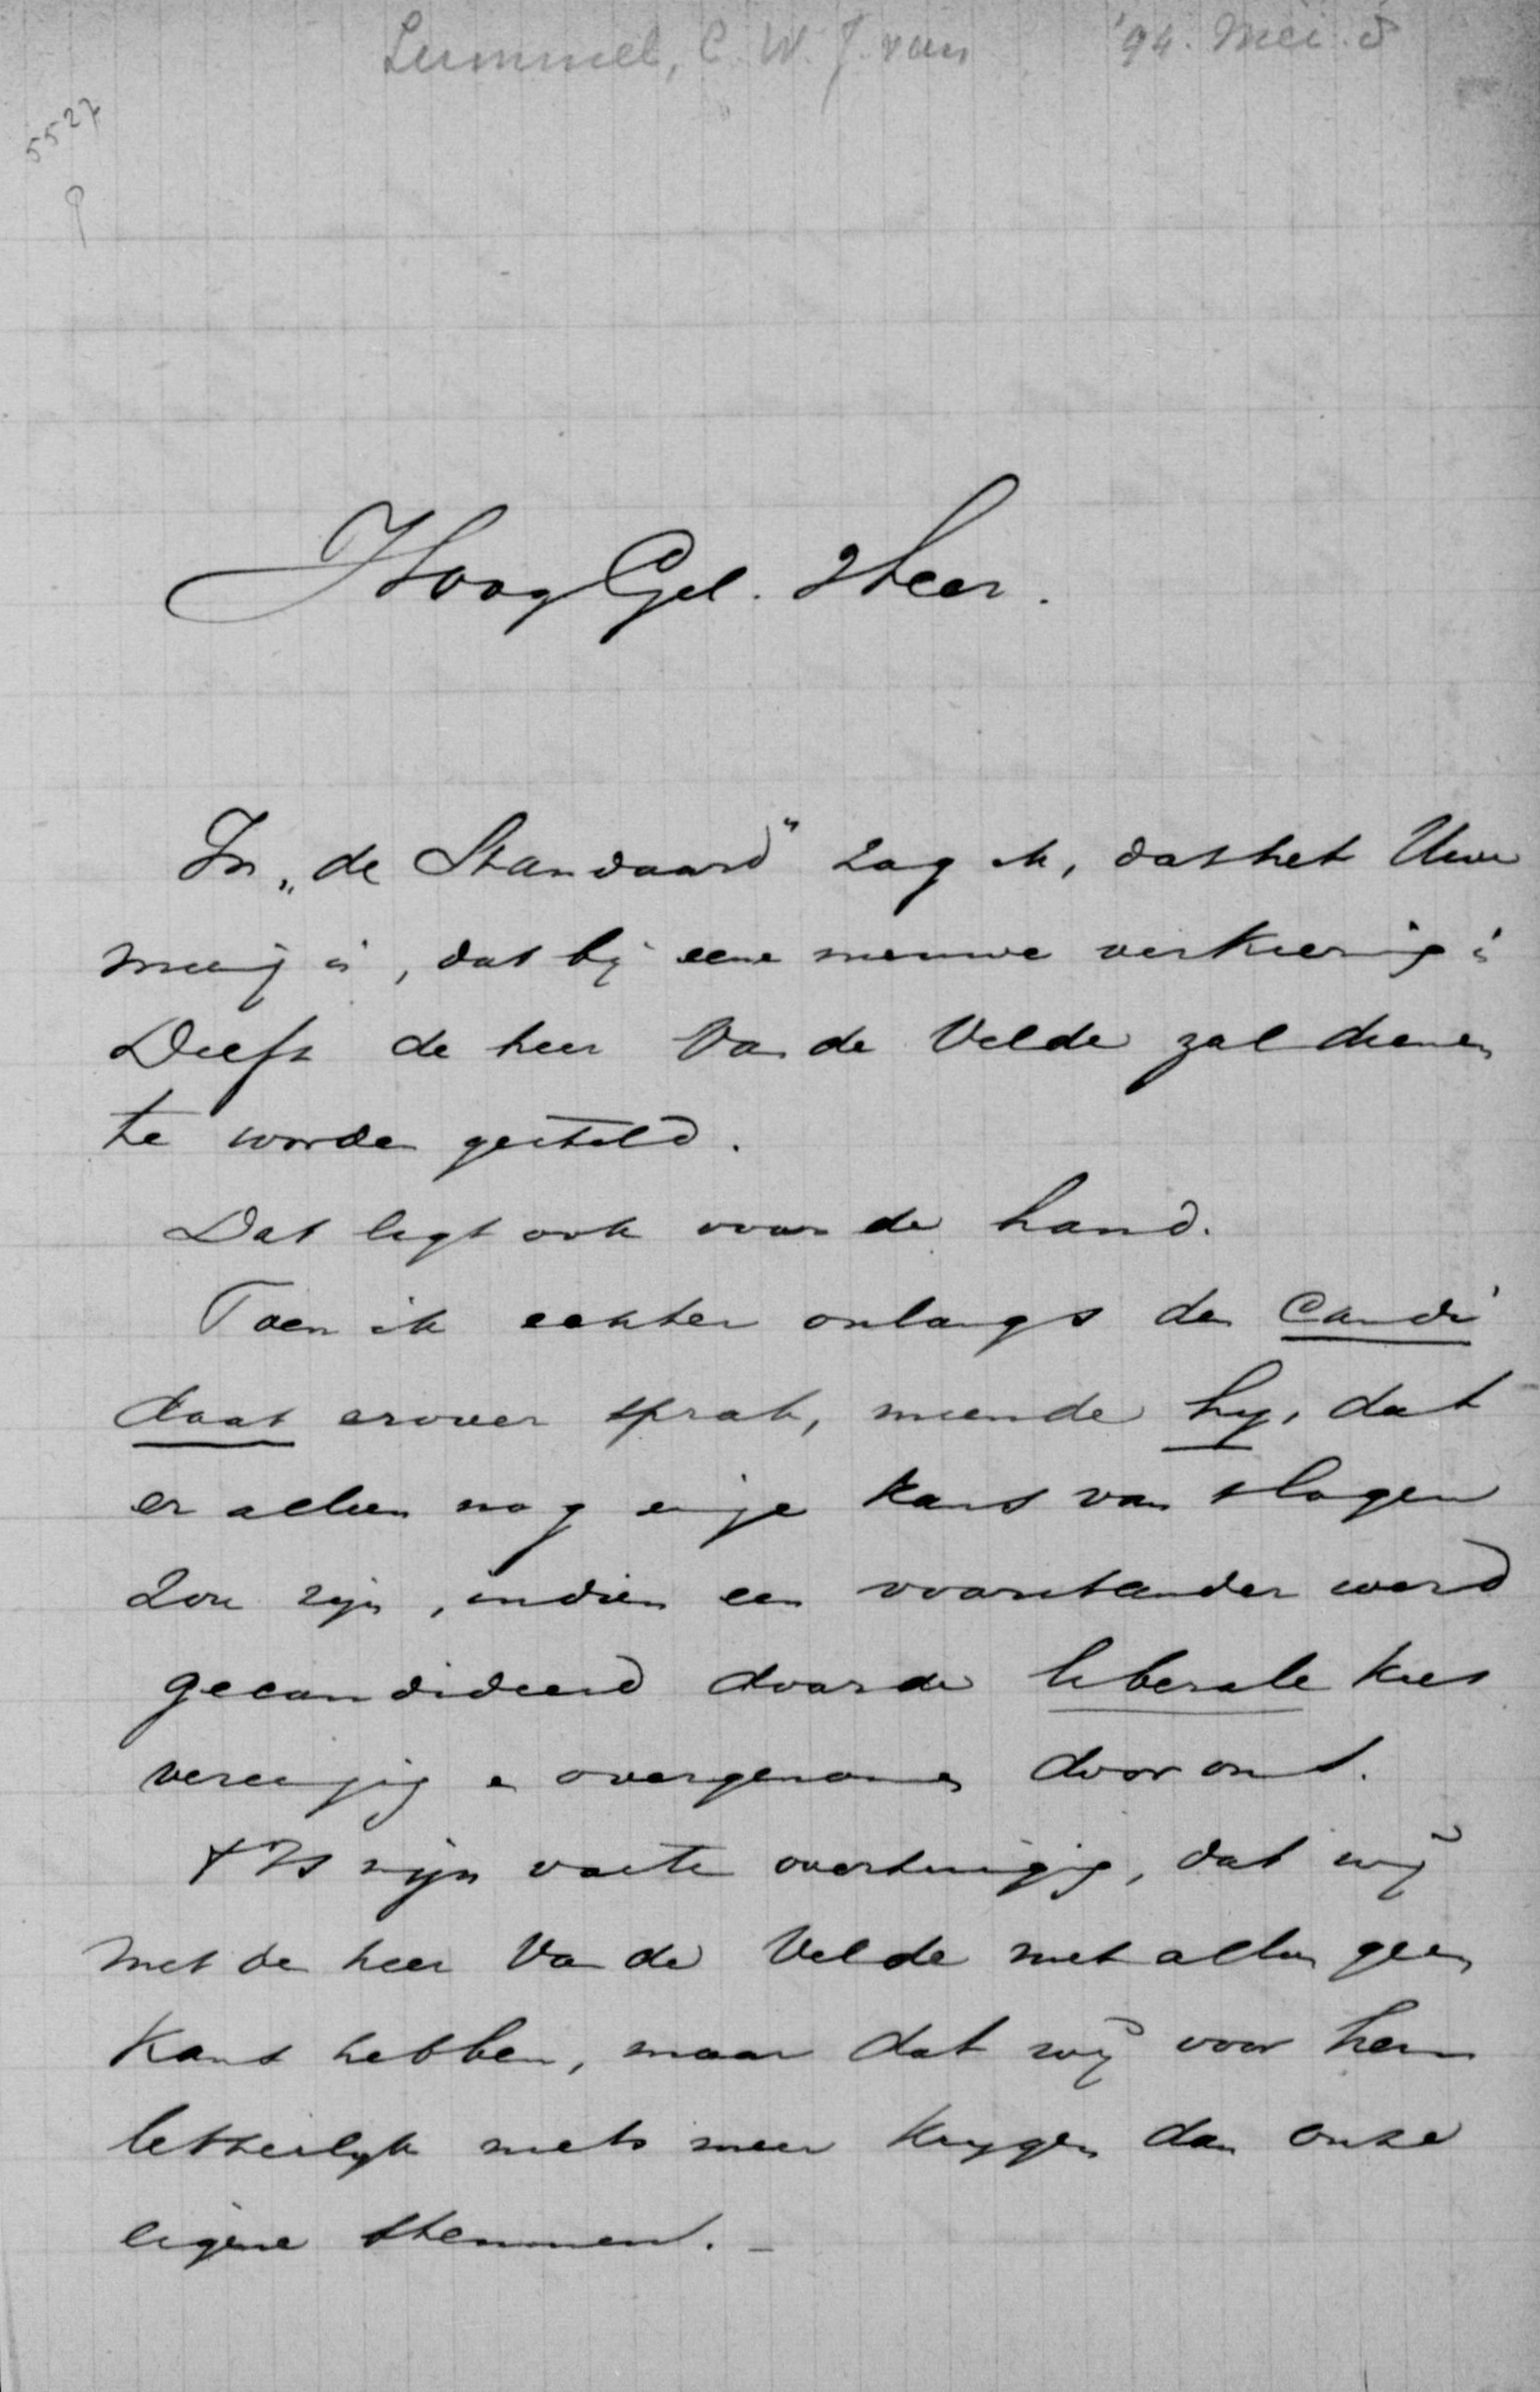 Lummel, C. W. J. van '94. Mei. 8
5527
HoogGel. Heer.
In „de Standaard” zag ik, dat het Uwe
meeng is, dat bij eene nieuwe verkiezing i
Delft de heer Van de Velde zal dienen
te worden gesteld.
Dat ligt ook voor de hand.
Toen ik echter onlangs den candi
daat erover sprak, meende hy, dat
er alleen nog enige kans van slagen
zou zijn, indien een voorstander werd
gecandideerd door de liberale kies
vereenging en overgenomen door ons.
't Is mijn vaste overtuiging, dat wij
met den heer Van de Velde niet alleen geen
kans hebben, maar dat wij voor hem
letterlyk niets meer krygen dan onze
eigene stemmen. -